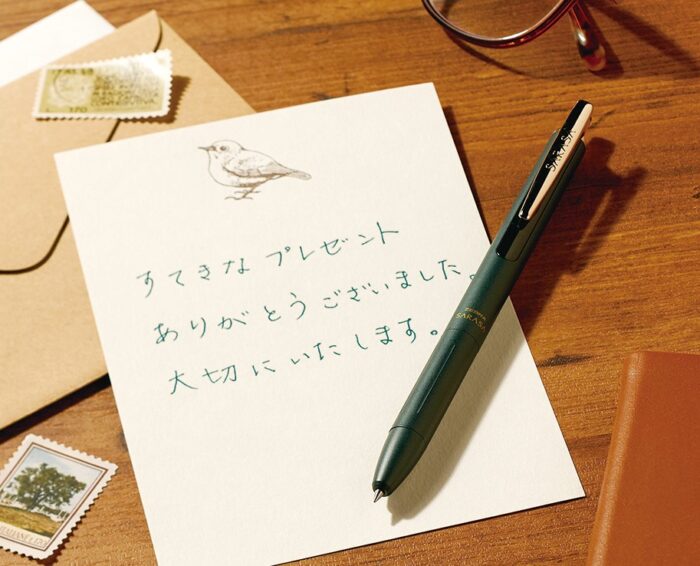 すてきなプレゼント
ありがとうございました。
大切にいたします。
SARASA
ZEBRA
SARASA